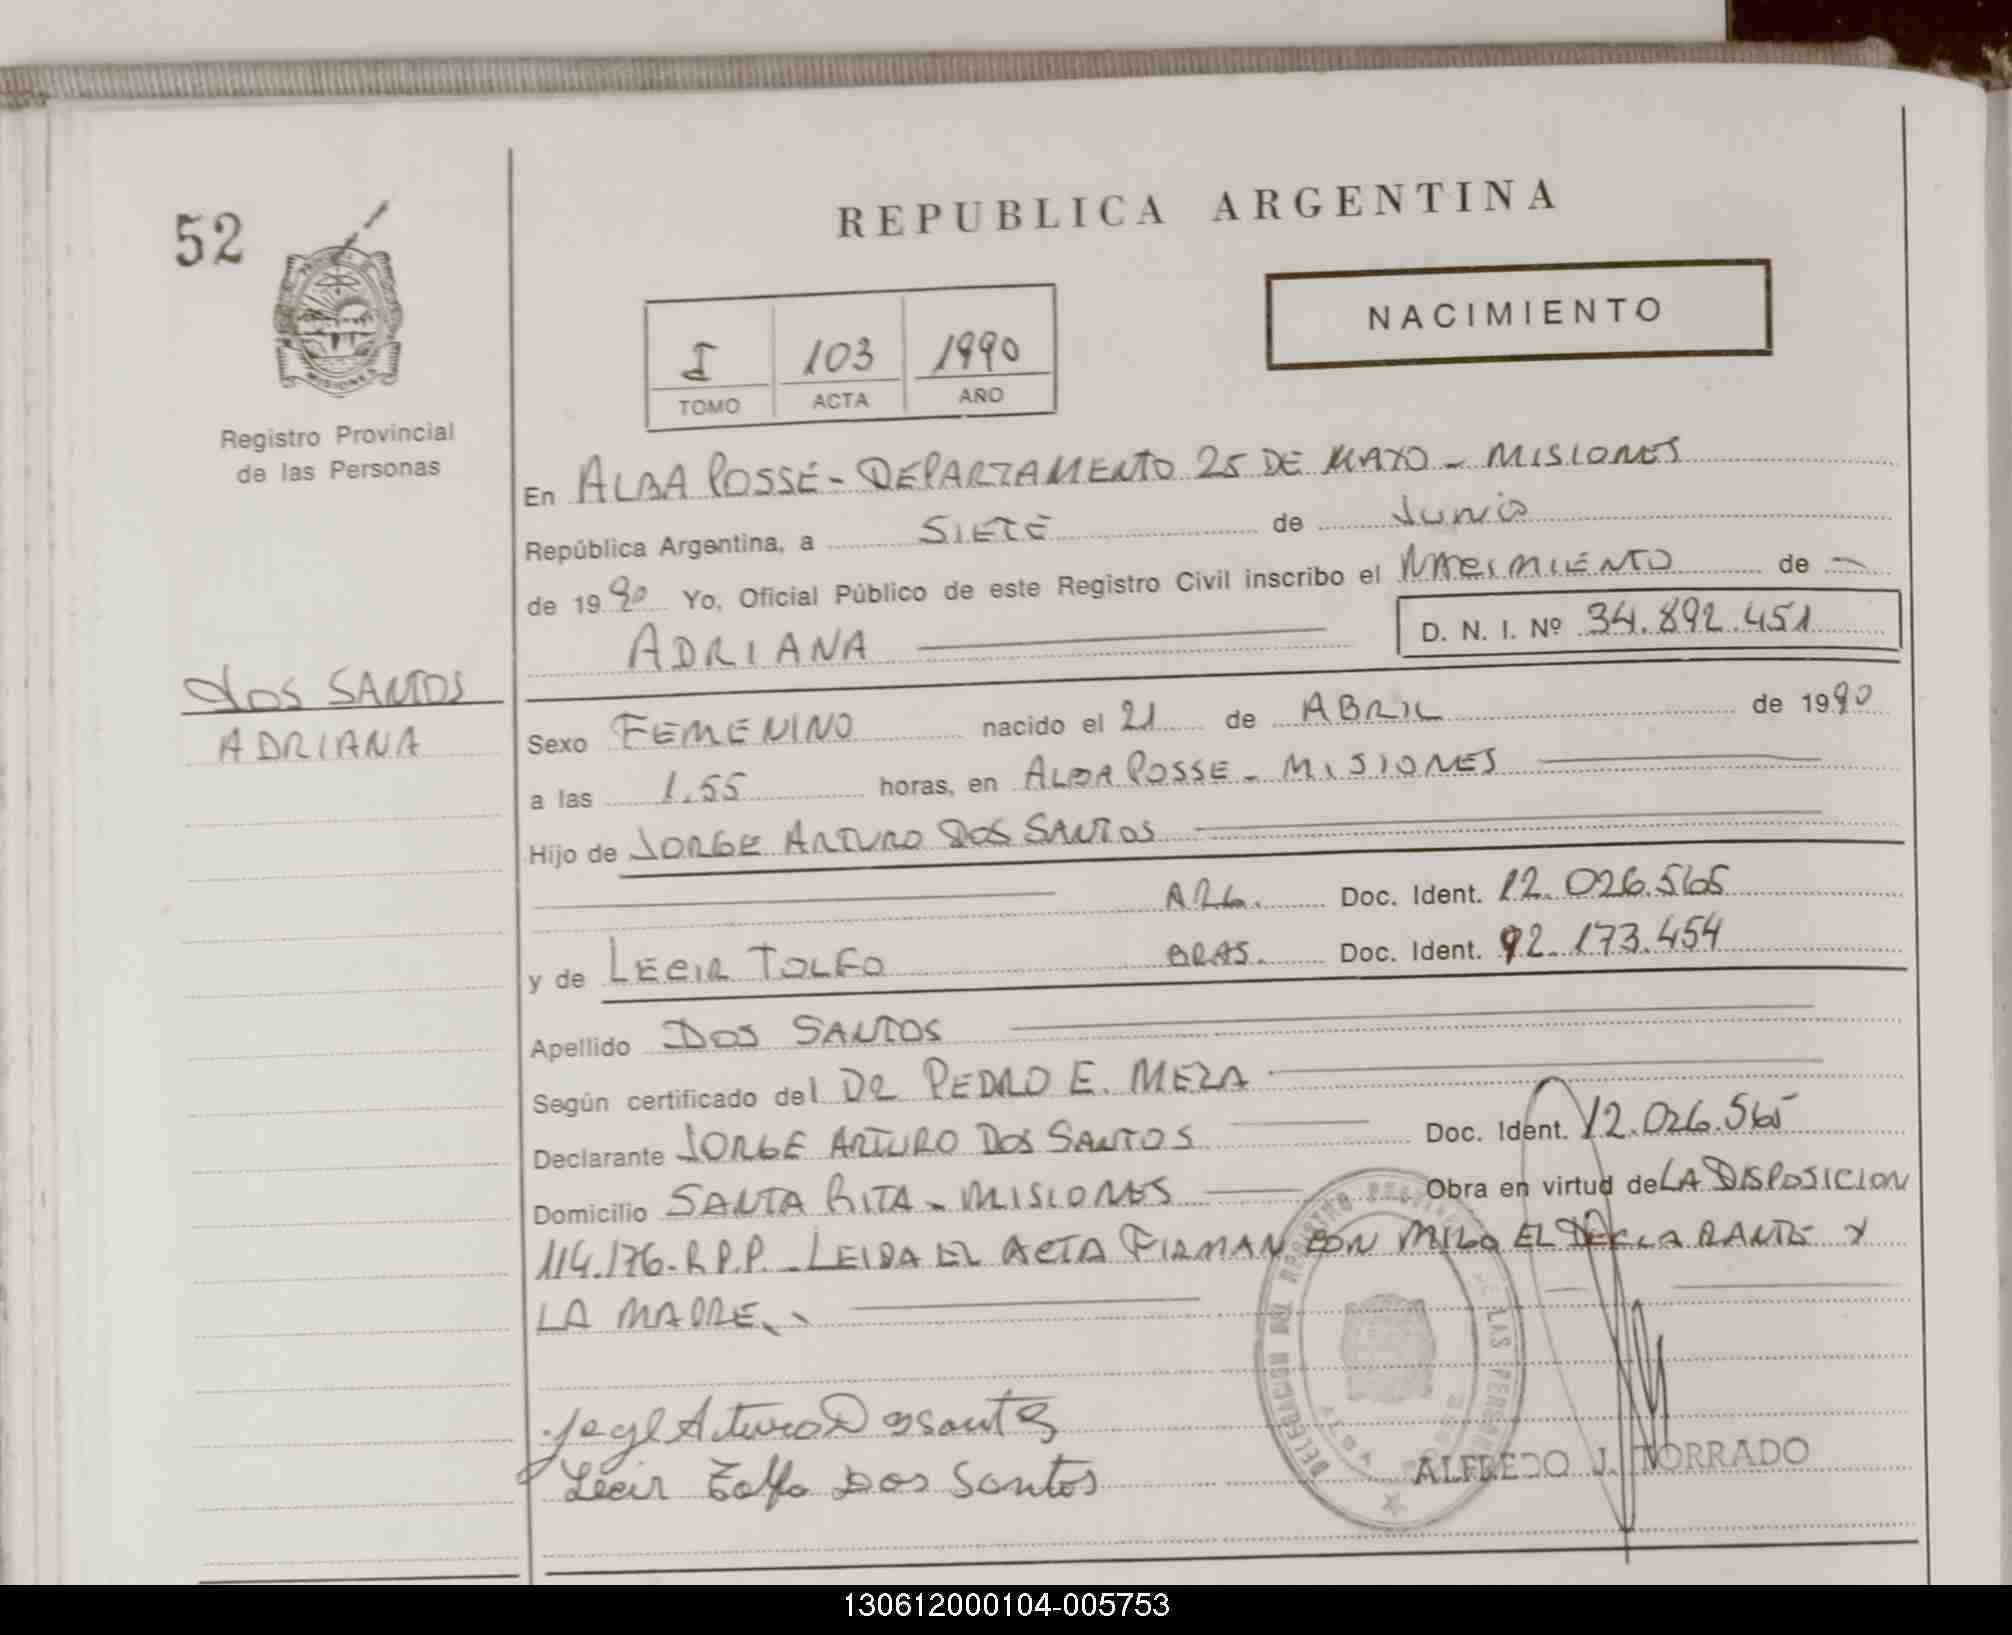 52
REPUBLICA ARGENTINA
NACIMIENTO
I 103 1990
TOMO ACTA AÑO
MISIONES
Registro Provincial
de las Personas
DOS SANTOS
ADRIANA
En ALBA POSSE - DEPARTAMENTO 25 DE MAYO - MISIONES
República Argentina, a SIETE de Junio
de 1990 Yo, Oficial Público de este Registro Civil inscribo el NACIMIENTO de
ADRIANA D. N. I. Nº 34.892.451
Sexo FEMENINO nacido el 21 de ABRIL de 1990
a las 1.55 horas, en ALBA POSSE - MISIONES
Hijo de JORGE ARTURO DOS SANTOS
ARG. Doc. Ident. 12.026.565
y de LECIR TOLFO BRAS. Doc. Ident. 92.173.454
Apellido DOS SANTOS
Según certificado del DR PEDRO E. MEZA
Declarante JORGE ARTURO DOS SANTOS Doc. Ident. 12.026.565
Domicilio SANTA RITA - MISIONES Obra en virtud de LA DISPOSICION
114/76-R.P.P. - LEIDA EL ACTA FIRMAN CON MIGO EL DECLARANTE Y
LA MADRE.
Arturo
Lecir Tolfo Dos Santos
DELEGACION DEL REGISTRO DE LAS PERSONAS
ALBA POSSE
ALFREDO J. TORRADO
130612000104-005753